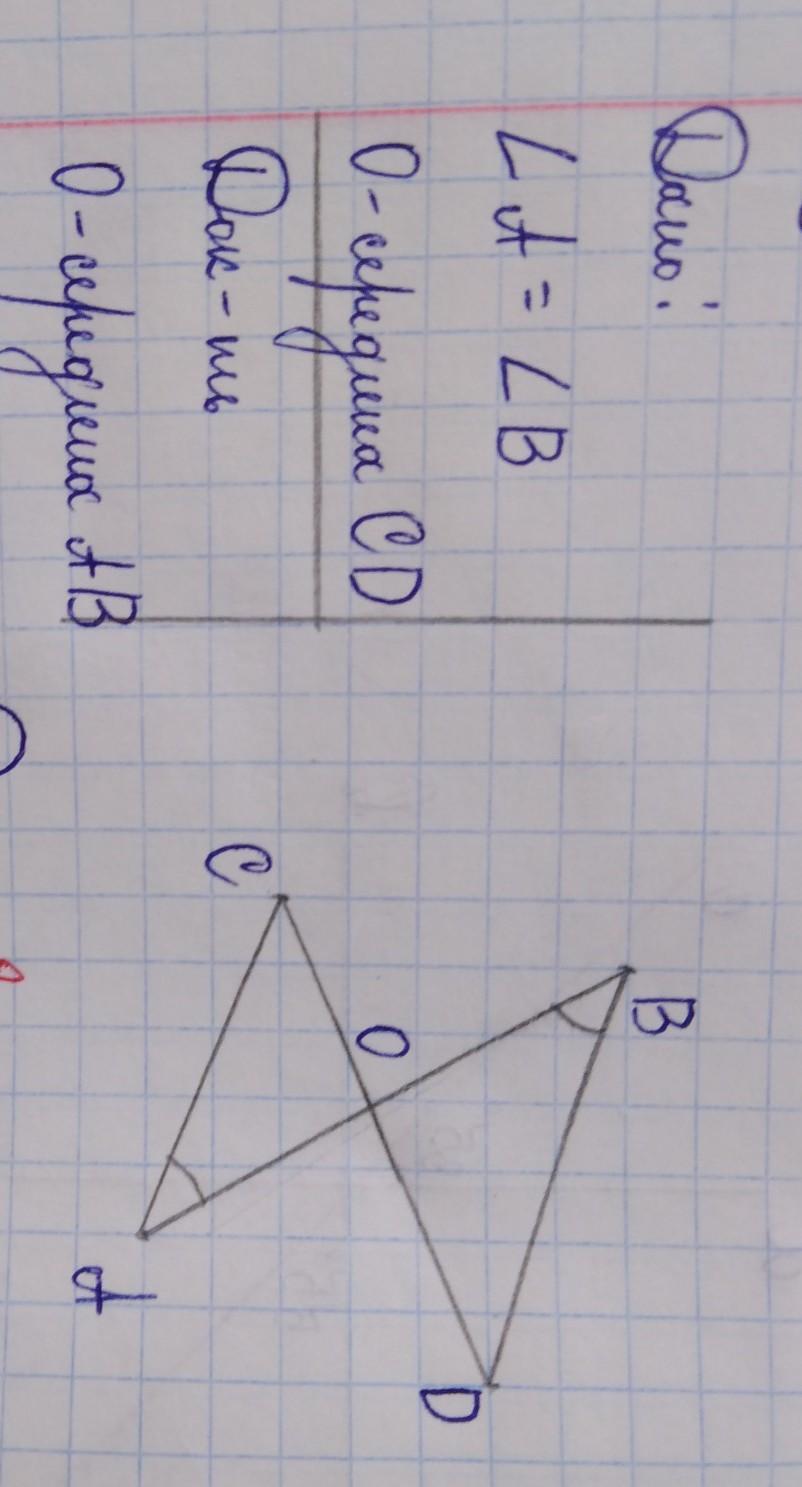 Дано:
∠A = ∠B
O - середина CD
Док-ть
O - середина AB
C
B
O
A
D